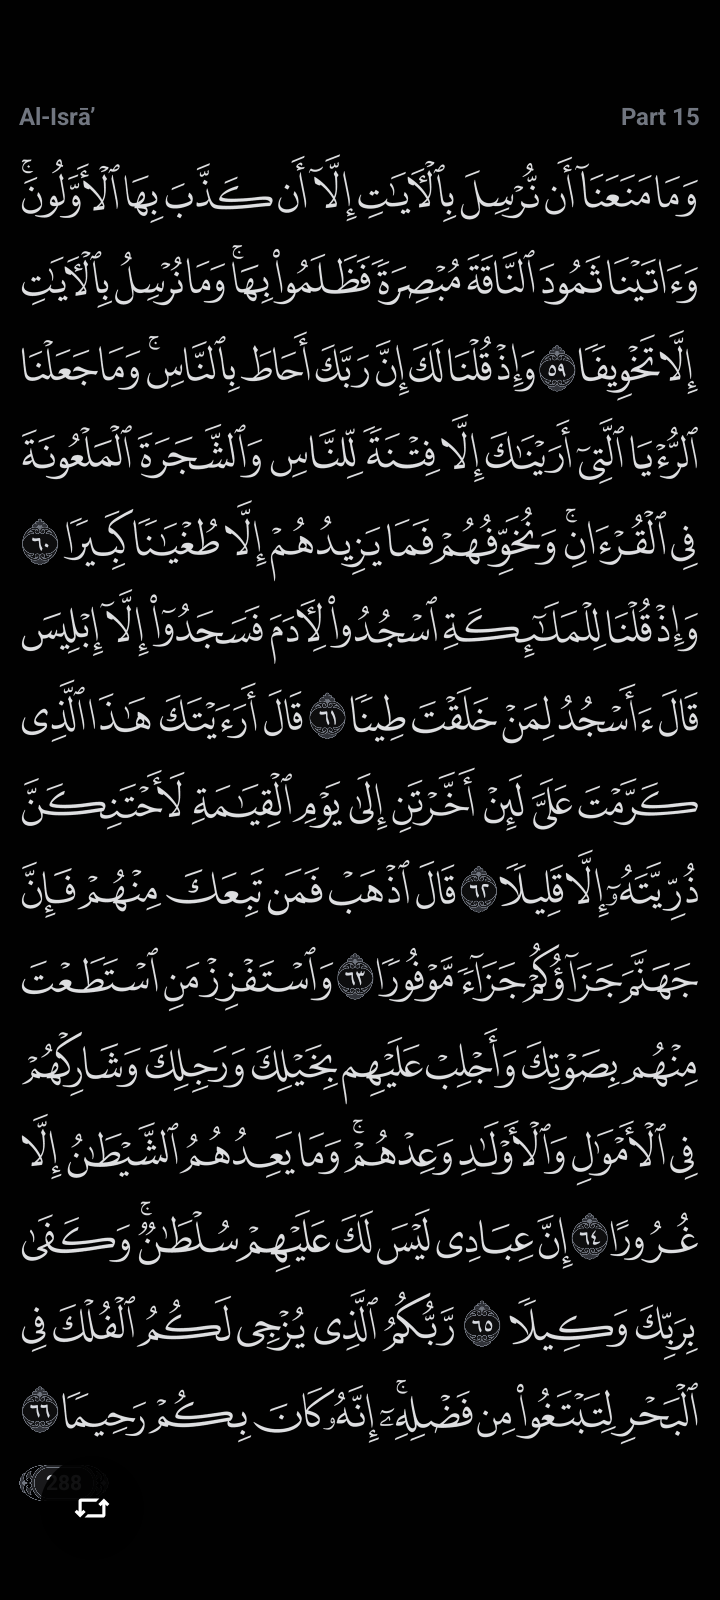 Al-Isrā’
Part 15
وَمَا مَنَعَنَآ أَن نُّرْسِلَ بِٱلْـَٔايَـٰتِ إِلَّآ أَن كَذَّبَ بِهَا ٱلْأَوَّلُونَ ۚ
وَءَاتَيْنَا ثَمُودَ ٱلنَّاقَةَ مُبْصِرَةً فَظَلَمُوا۟ بِهَا ۚ وَمَا نُرْسِلُ بِٱلْـَٔايَـٰتِ
إِلَّا تَخْوِيفًا ٥٩ وَإِذْ قُلْنَا لَكَ إِنَّ رَبَّكَ أَحَاطَ بِٱلنَّاسِ ۚ وَمَا جَعَلْنَا
ٱلرُّءْيَا ٱلَّتِىٓ أَرَيْنَـٰكَ إِلَّا فِتْنَةً لِّلنَّاسِ وَٱلشَّجَرَةَ ٱلْمَلْعُونَةَ
فِى ٱلْقُرْءَانِ ۚ وَنُخَوِّفُهُمْ فَمَا يَزِيدُهُمْ إِلَّا طُغْيَـٰنًا كَبِيرًا ٦٠
وَإِذْ قُلْنَا لِلْمَلَـٰٓئِكَةِ ٱسْجُدُوا۟ لِـَٔادَمَ فَسَجَدُوٓا۟ إِلَّآ إِبْلِيسَ
قَالَ ءَأَسْجُدُ لِمَنْ خَلَقْتَ طِينًا ٦١ قَالَ أَرَءَيْتَكَ هَـٰذَا ٱلَّذِى
كَرَّمْتَ عَلَىَّ لَئِنْ أَخَّرْتَنِ إِلَىٰ يَوْمِ ٱلْقِيَـٰمَةِ لَأَحْتَنِكَنَّ
ذُرِّيَّتَهُۥٓ إِلَّا قَلِيلًا ٦٢ قَالَ ٱذْهَبْ فَمَن تَبِعَكَ مِنْهُمْ فَإِنَّ
جَهَنَّمَ جَزَآؤُكُمْ جَزَآءً مَّوْفُورًا ٦٣ وَٱسْتَفْزِزْ مَنِ ٱسْتَطَعْتَ
مِنْهُم بِصَوْتِكَ وَأَجْلِبْ عَلَيْهِم بِخَيْلِكَ وَرَجِلِكَ وَشَارِكْهُمْ
فِى ٱلْأَمْوَٰلِ وَٱلْأَوْلَـٰدِ وَعِدْهُمْ ۚ وَمَا يَعِدُهُمُ ٱلشَّيْطَـٰنُ إِلَّا
غُرُورًا ٦٤ إِنَّ عِبَادِى لَيْسَ لَكَ عَلَيْهِمْ سُلْطَـٰنٌ ۚ وَكَفَىٰ
بِرَبِّكَ وَكِيلًا ٦٥ رَّبُّكُمُ ٱلَّذِى يُزْجِى لَكُمُ ٱلْفُلْكَ فِى
ٱلْبَحْرِ لِتَبْتَغُوا۟ مِن فَضْلِهِۦٓ ۚ إِنَّهُۥ كَانَ بِكُمْ رَحِيمًا ٦٦
288